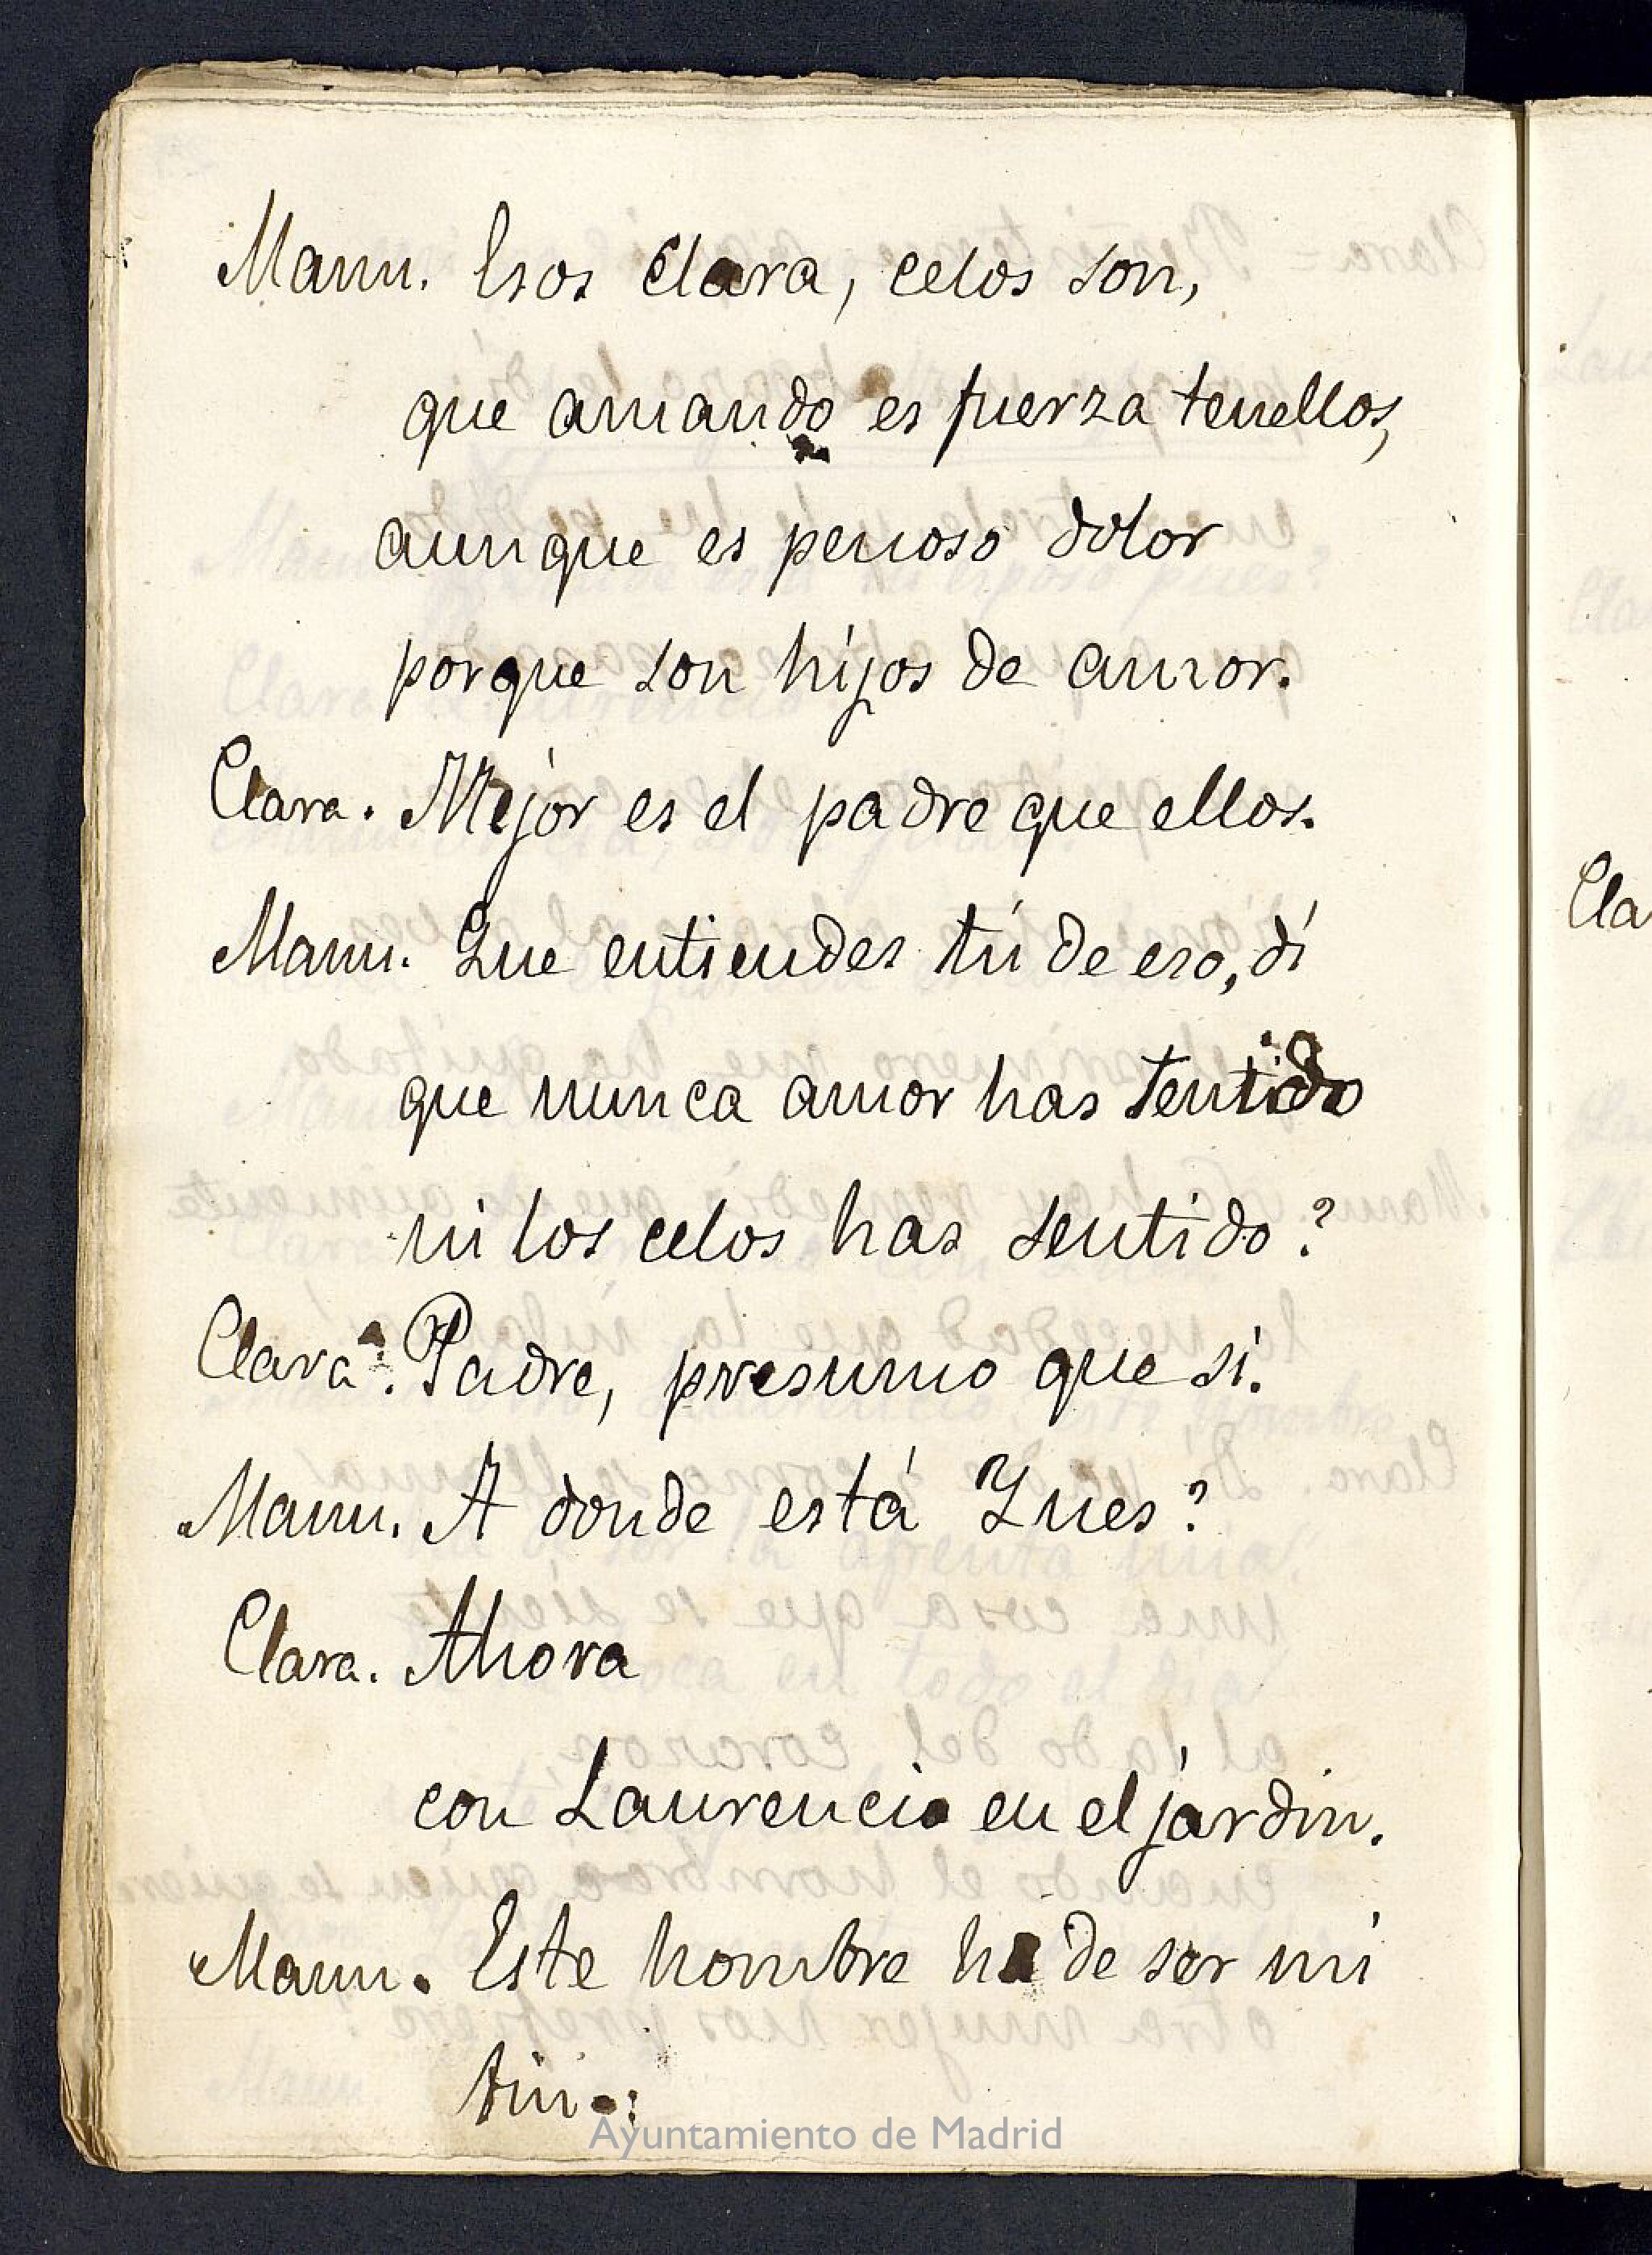 Manu. Esos Clara, celos son,
que amando es fuerza tenellos,
aunque es penoso dolor
porque son hijos de amor.
Clara. Mejor es el padre que ellos.
Manu. Que entiendes tú de eso, dí
que nunca amor has tenido
ni los celos has sentido?
Clara. Padre, presumo que sí.
Manu. A donde está Ynes?
Clara. Ahora
con Laurencio en el jardin.
Manu. Este hombre ha de ser mi
fin.
Cla
Ayuntamiento de Madrid